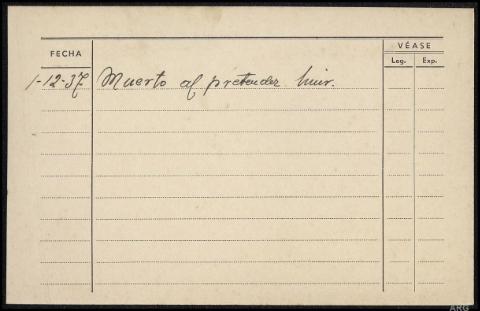 FECHA
VÉASE
Leg. Exp.
1-12-37 Muerto al pretender huir.
ARG